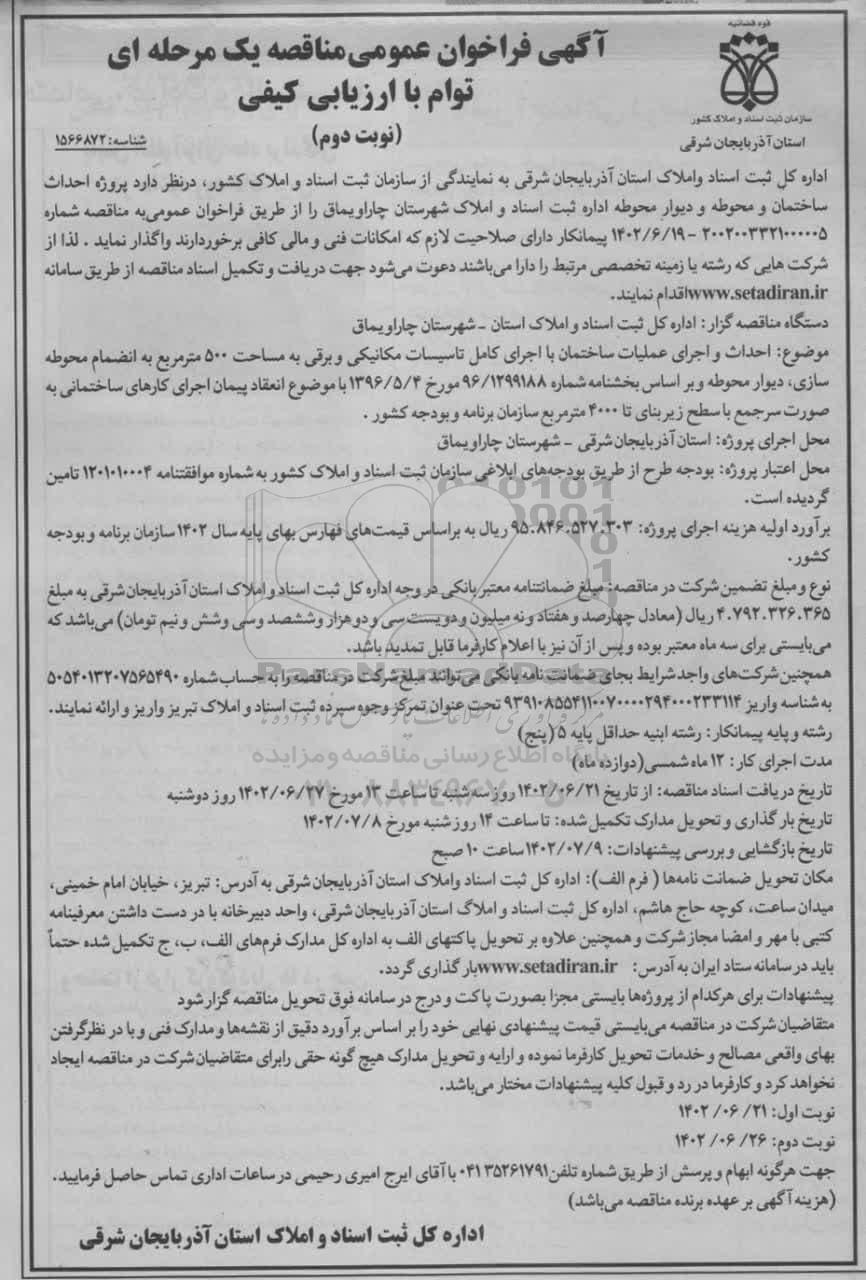 قوه قضائیه
سازمان ثبت اسناد و املاک کشور
استان آذربایجان شرقی
آگهی فراخوان عمومی مناقصه یک مرحله ای
توام با ارزیابی کیفی
(نوبت دوم)
شناسه: ۱۵۶۶۸۷۲
اداره کل ثبت اسناد واملاک استان آذربایجان شرقی به نمایندگی از سازمان ثبت اسناد و املاک کشور، درنظر دارد پروژه احداث
ساختمان و محوطه و دیوار محوطه اداره ثبت اسناد و املاک شهرستان چاراویماق را از طریق فراخوان عمومی‌به مناقصه شماره
۲۰۰۲۰۰۳۳۲۱۰۰۰۰۰۵ - ۱۴۰۲/۶/۱۹ پیمانکار دارای صلاحیت لازم که امکانات فنی و مالی کافی برخوردارند واگذار نماید . لذا از
شرکت هایی که رشته یا زمینه تخصصی مرتبط را دارا می‌باشند دعوت می‌شود جهت دریافت و تکمیل اسناد مناقصه از طریق سامانه
www.setadiran.irاقدام نمایند.
دستگاه مناقصه گزار: اداره کل ثبت اسناد و املاک استان - شهرستان چاراویماق
موضوع: احداث و اجرای عملیات ساختمان با اجرای کامل تاسیسات مکانیکی و برقی به مساحت ۵۰۰ مترمربع به انضمام محوطه
سازی، دیوار محوطه و بر اساس بخشنامه شماره ۹۶/۱۲۹۹۱۸۸ مورخ ۱۳۹۶/۵/۴ با موضوع انعقاد پیمان اجرای کارهای ساختمانی به
صورت سرجمع با سطح زیربنای تا ۴۰۰۰ مترمربع سازمان برنامه و بودجه کشور .
محل اجرای پروژه: استان آذربایجان شرقی - شهرستان چاراویماق
محل اعتبار پروژه: بودجه طرح از طریق بودجه‌های ابلاغی سازمان ثبت اسناد و املاک کشور به شماره موافقتنامه ۱۲۰۱۰۱۰۰۰۴ تامین
گردیده است.
برآورد اولیه هزینه اجرای پروژه: ۹۵.۸۴۶.۵۲۷.۳۰۳ ریال به براساس قیمت‌های فهارس بهای پایه سال ۱۴۰۲ سازمان برنامه و بودجه
کشور.
نوع و مبلغ تضمین شرکت در مناقصه: مبلغ ضمانتنامه معتبر بانکی در وجه اداره کل ثبت اسناد و املاک استان آذربایجان شرقی به مبلغ
۴.۷۹۲.۳۲۶.۳۶۵ ریال (معادل چهارصد و هفتاد و نه میلیون و دویست سی و دوهزار و ششصد و سی وشش و نیم تومان) می‌باشد که
می‌بایستی برای سه ماه معتبر بوده و پس از آن نیز با اعلام کارفرما قابل تمدید باشد.
همچنین شرکت‌های واجد شرایط بجای ضمانت نامه بانکی می‌توانند مبلغ شرکت در مناقصه را به حساب شماره ۵۰۵۴۰۱۳۲۰۷۵۶۵۴۹۰
به شناسه واریز ۹۳۹۱۰۸۵۵۴۱۱۰۰۷۰۰۰۰۲۹۴۰۰۰۲۳۳۱۱۴ تحت عنوان تمرکز وجوه سپرده ثبت اسناد و املاک تبریز واریز و ارائه نمایند.
رشته و پایه پیمانکار: رشته ابنیه حداقل پایه ۵ (پنج)
مدت اجرای کار: ۱۲ ماه شمسی(دوازده ماه)
تاریخ دریافت اسناد مناقصه: از تاریخ ۱۴۰۲/۰۶/۲۱ روز سه شنبه تا ساعت ۱۳ مورخ ۱۴۰۲/۰۶/۲۷ روز دوشنبه
تاریخ بارگذاری و تحویل مدارک تکمیل شده: تا ساعت ۱۴ روز شنبه مورخ ۱۴۰۲/۰۷/۸
تاریخ بازگشایی و بررسی پیشنهادات: ۱۴۰۲/۰۷/۹ ساعت ۱۰ صبح
مکان تحویل ضمانت نامه‌ها ( فرم الف): اداره کل ثبت اسناد واملاک استان آذربایجان شرقی به آدرس: تبریز، خیابان امام خمینی،
میدان ساعت، کوچه حاج هاشم، اداره کل ثبت اسناد و املاگ استان آذربایجان شرقی، واحد دبیرخانه با در دست داشتن معرفینامه
کتبی با مهر و امضا مجاز شرکت و همچنین علاوه بر تحویل پاکتهای الف به اداره کل مدارک فرم‌های الف، ب، ج تکمیل شده حتماً
باید در سامانه ستاد ایران به آدرس: www.setadiran.irبارگذاری گردد.
پیشنهادات برای هرکدام از پروژه‌ها بایستی مجزا بصورت پاکت و درج در سامانه فوق تحویل مناقصه گزار شود
متقاضیان شرکت در مناقصه می‌بایستی قیمت پیشنهادی نهایی خود را بر اساس برآورد دقیق از نقشه‌ها و مدارک فنی و با در نظرگرفتن
بهای واقعی مصالح و خدمات تحویل کارفرما نموده و ارایه و تحویل مدارک هیچ گونه حقی رابرای متقاضیان شرکت در مناقصه ایجاد
نخواهد کرد و کارفرما در رد و قبول کلیه پیشنهادات مختار می‌باشد.
نوبت اول: ۲۱/ ۰۶/ ۱۴۰۲
نوبت دوم: ۲۶/ ۰۶/ ۱۴۰۲
جهت هرگونه ابهام و پرسش از طریق شماره تلفن۰۴۱۳۵۲۶۱۷۹۱ با آقای ایرج امیری رحیمی در ساعات اداری تماس حاصل فرمایید.
(هزینه آگهی بر عهده برنده مناقصه می‌باشد)
اداره کل ثبت اسناد و املاک استان آذربایجان شرقی
ParsNamadData
پایگاه اطلاع رسانی مناقصه و مزایده